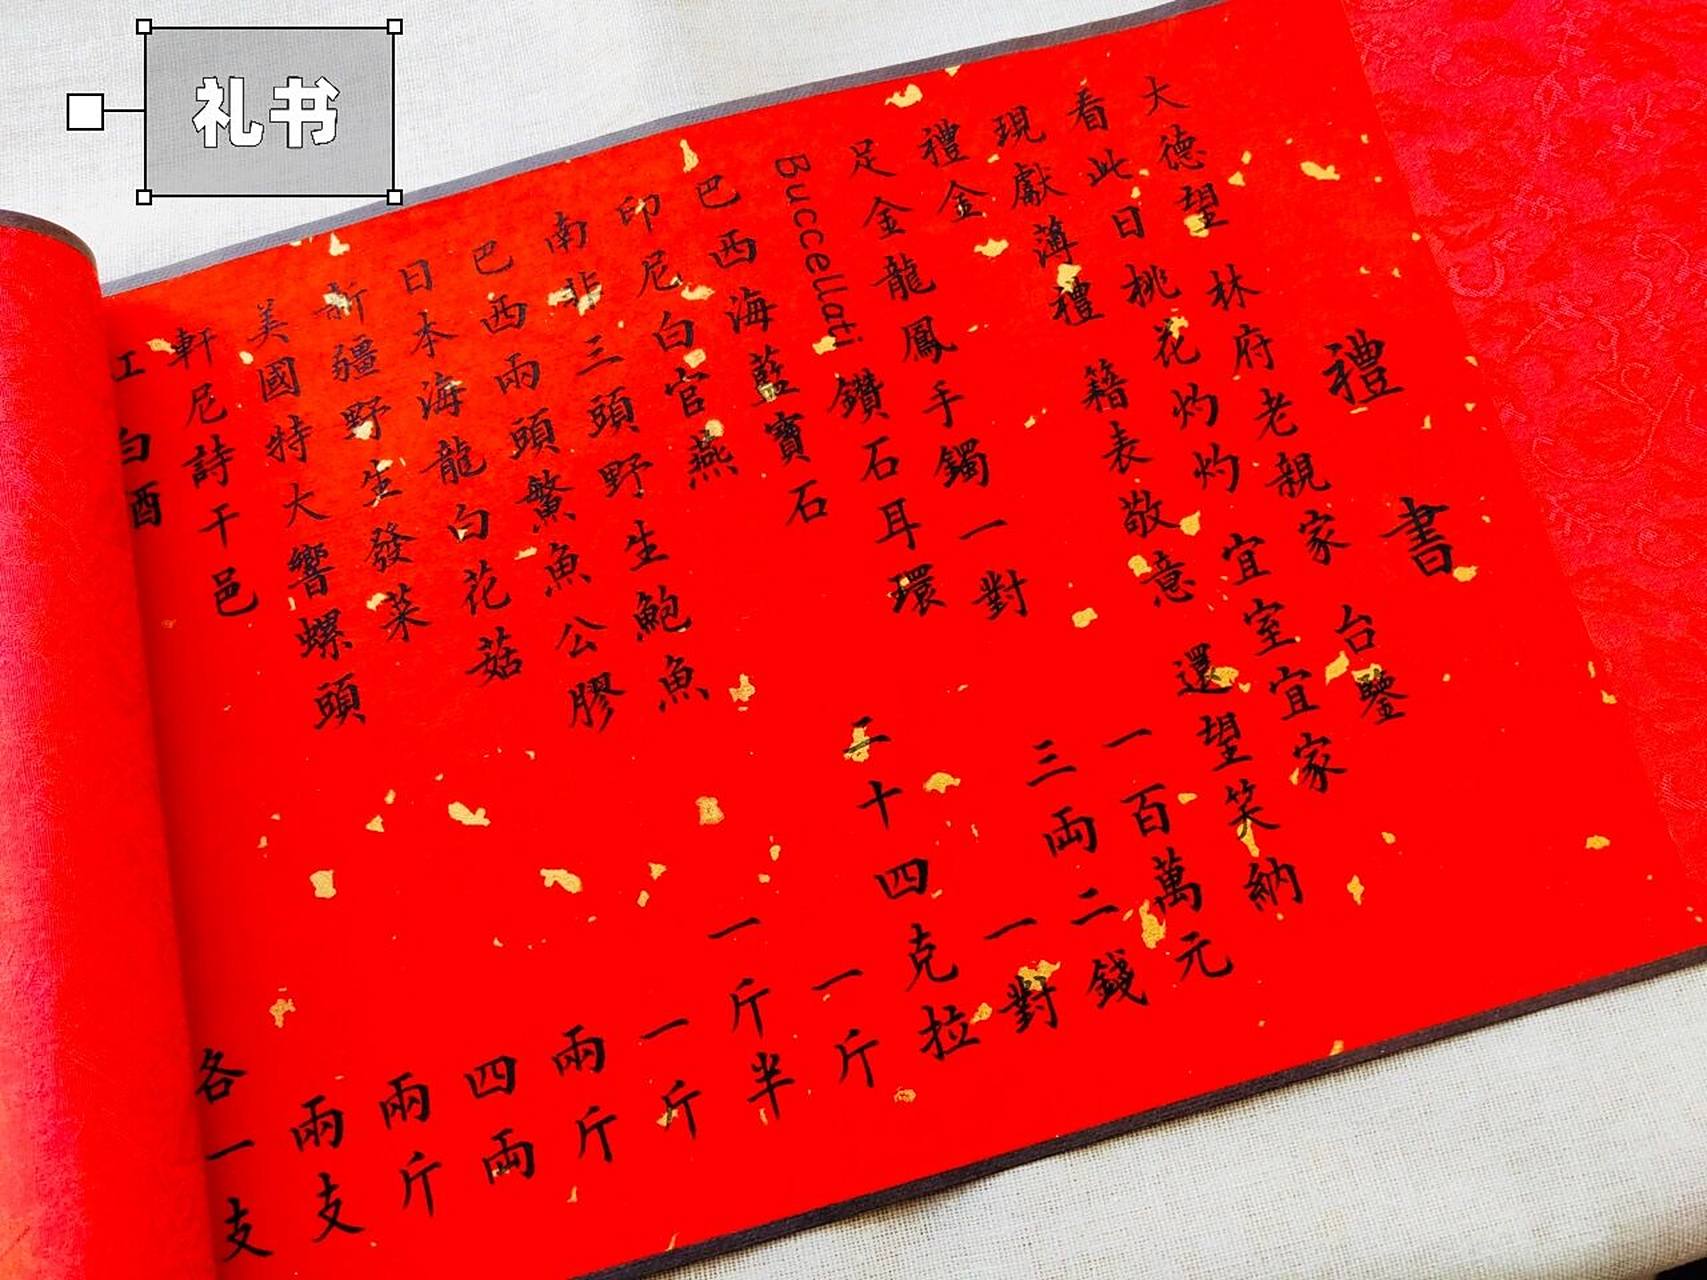 礼书
禮書
大德望 林府老親家 台鑒
看此日桃花灼灼 宜室宜家
現獻薄禮 籍表敬意 還望笑納
禮金 一百萬元
足金龍鳳手鐲一對 三両二錢
Buccellati 鑽石耳環 一對
巴西海藍寶石 二十四克拉
印尼白官燕 一斤
南非三頭野生鮑魚 一斤半
巴西兩頭鰵魚公膠 一斤
日本海龍白花菇 兩斤
新疆野生發菜 四両
美國特大響螺頭 兩斤
軒尼詩干邑 兩支
紅白酒 各一支